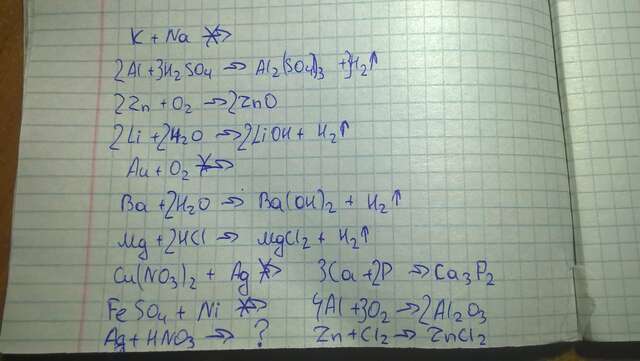 K + Na ↛
2Al+3H2SO4 → Al2(SO4)3 + 3H2↑
2Zn + O2 → 2ZnO
2Li + 2H2O → 2LiOH + H2↑
Au + O2 ↛
Ba + 2H2O → Ba(OH)2 + H2↑
Mg + 2HCl → MgCl2 + H2↑
Cu(NO3)2 + Ag ↛ 3Ca + 2P → Ca3P2
FeSO4 + Ni ↛ 4Al + 3O2 → 2Al2O3
Ag + HNO3 → ? Zn + Cl2 → ZnCl2